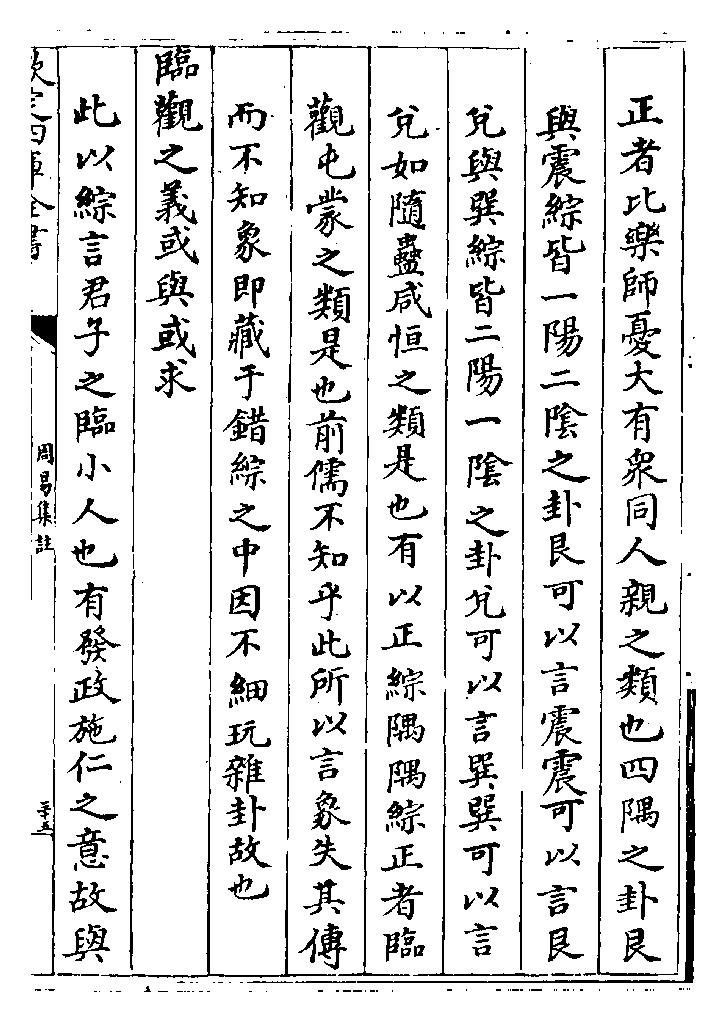 正者比樂師憂大有衆同人親之類也四隅之卦艮
與震綜皆一陽二陰之卦艮可以言震震可以言艮
兌與巽綜皆二陽一陰之卦兌可以言巽巽可以言
兌如隨蠱咸恒之類是也有以正綜隅隅綜正者臨
觀屯蒙之類是也前儒不知乎此所以言象失其傳
而不知象即藏于錯綜之中因不細玩雜卦故也
臨觀之義或與或求
此以綜言君子之臨小人也有發政施仁之意故與
欽定四庫全書
周易集註
三十五